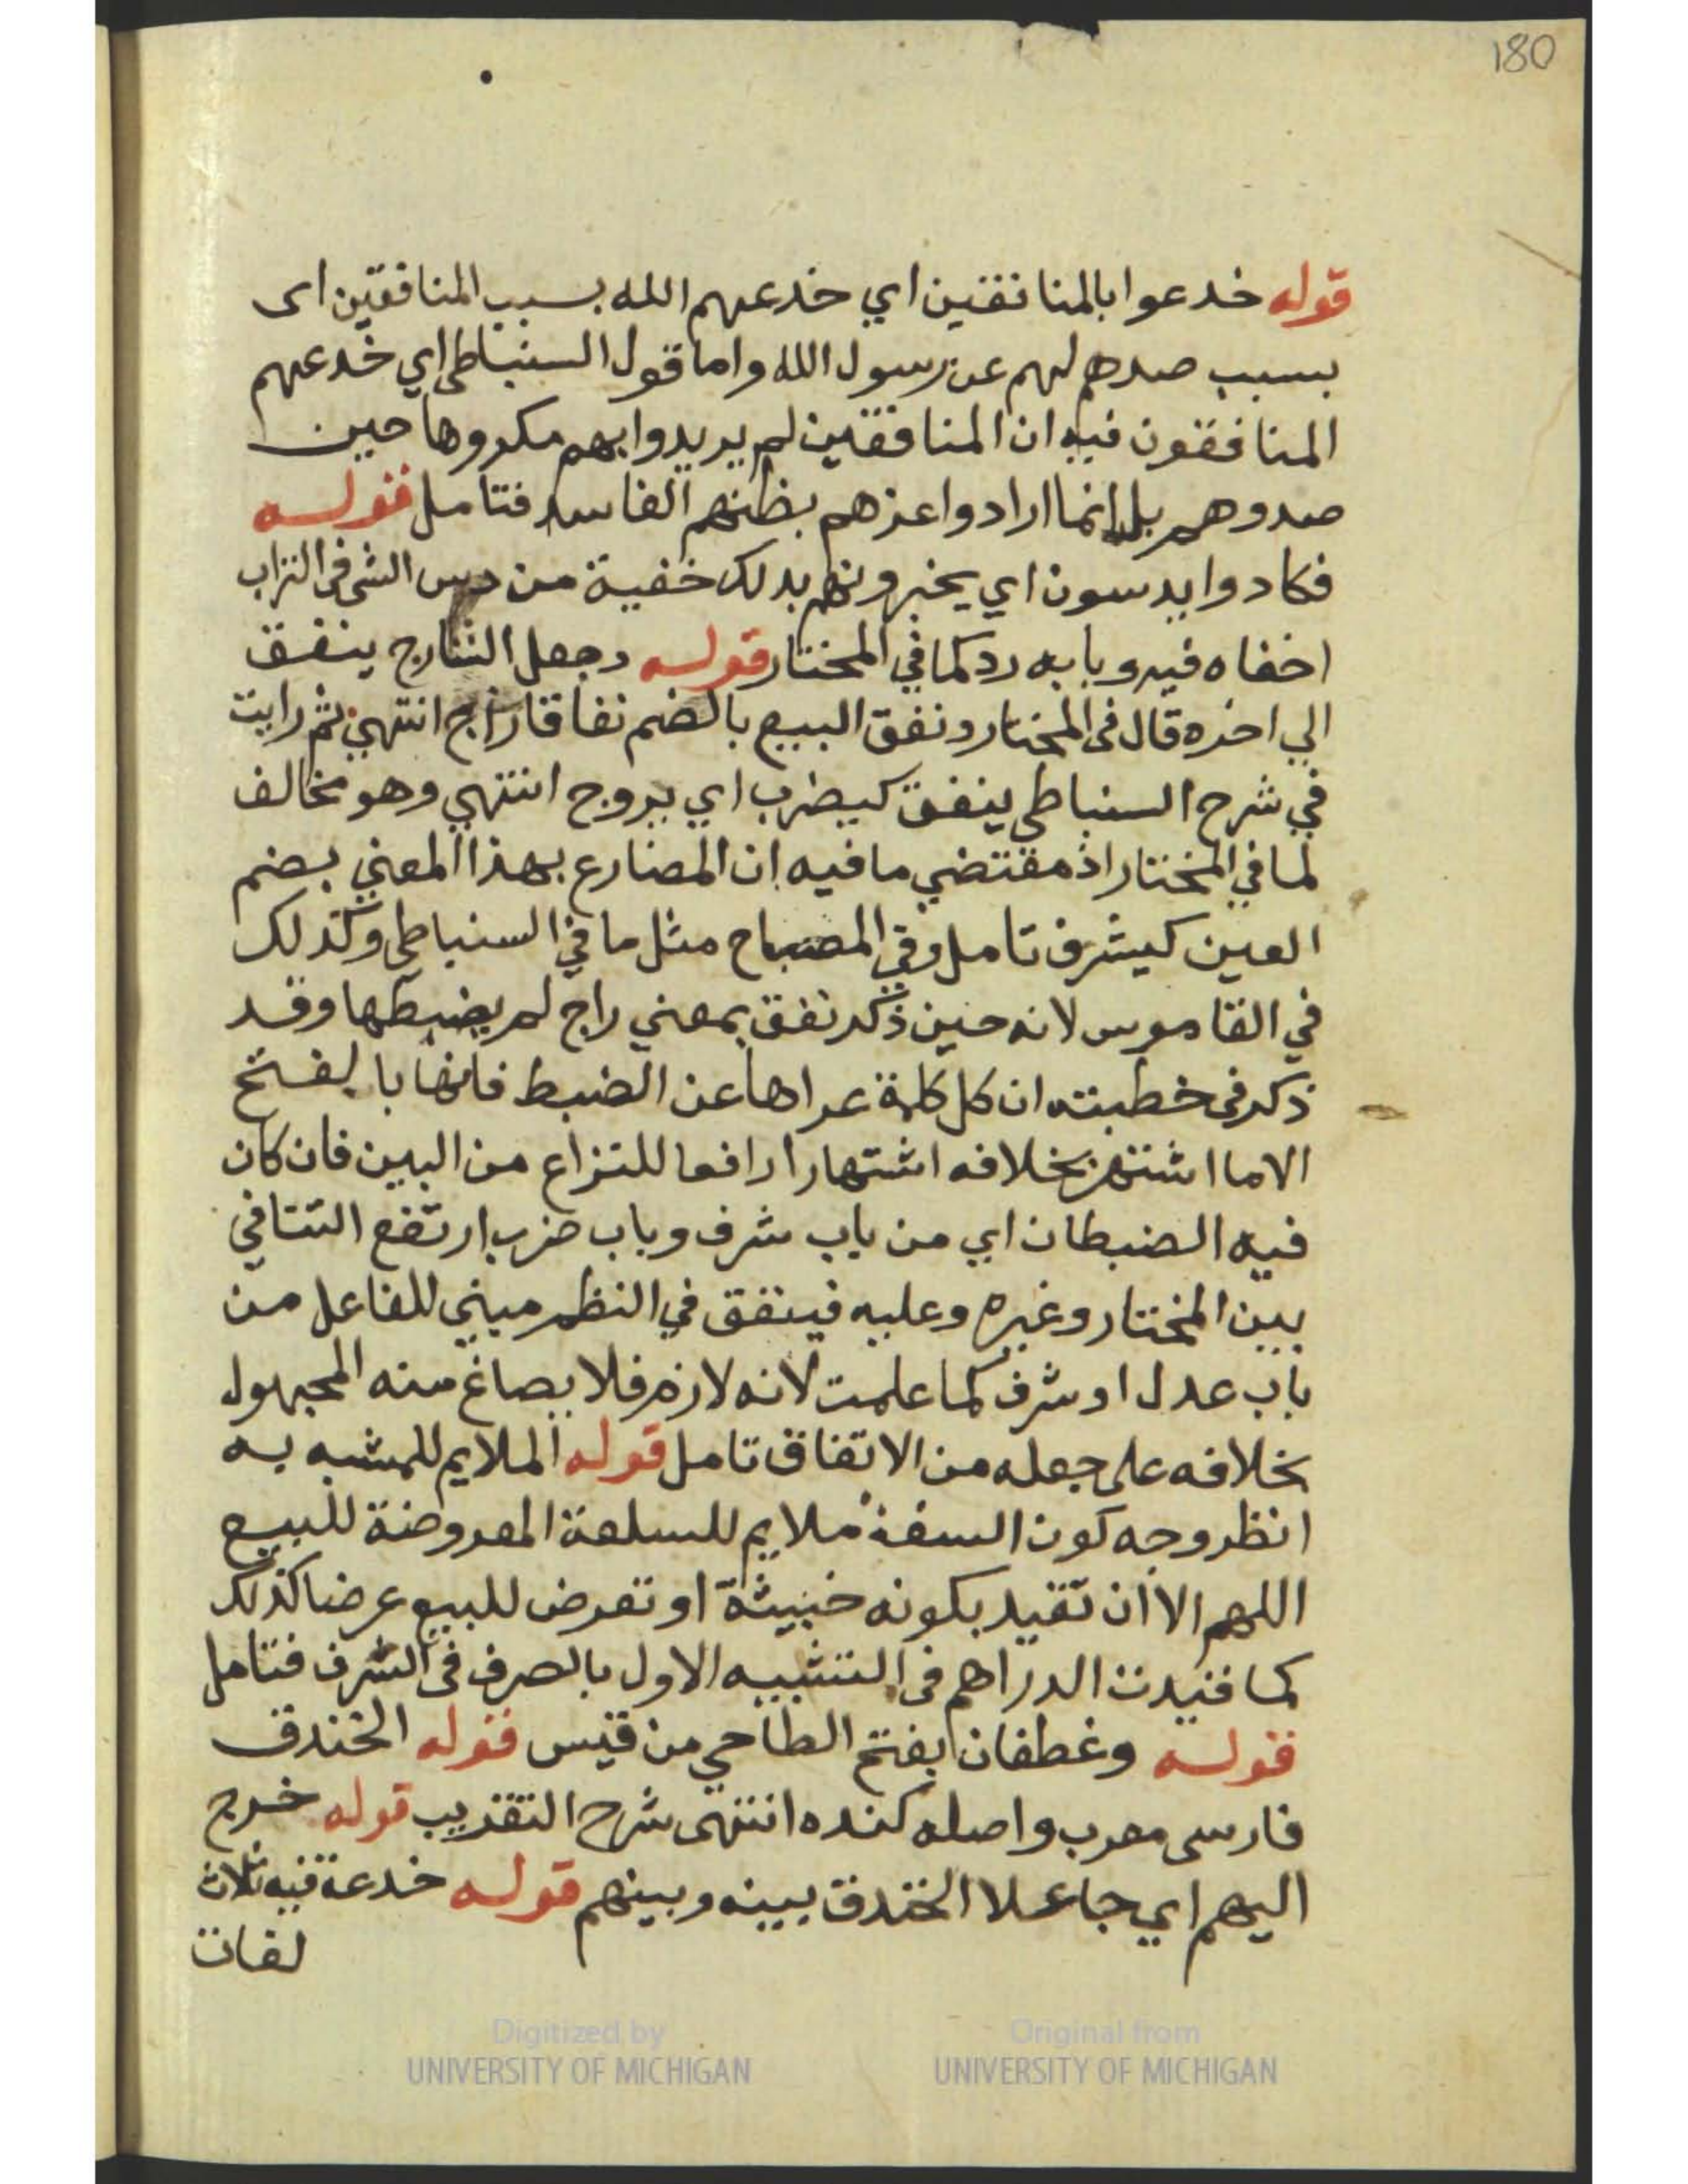 180
قوله خدعوا بالمنافقين اي خدعهم الله بسبب المنافقين اى
بسبب صدهم لهم عن رسول الله واما قول السنباطي اي خدعهم
المنافقون فيه ان المنافقين لم يريدوا بهم مكروها حين
صدوهم بل انما ارادوا عزهم بظنهم الفاسد فتامل قوله
فكادوا يدسون اي يخبرونهم بذلك خفية من دس الشى فى التراب
اخفاه فيه وبابه رد كما في المختار قوله وجعل الشارح ينفق
الي اخره قال فى المختار ونفق البيع بالضم نفاقا راج انتهي ثم رايت
في شرح السنباطي ينفق كيضرب اي يروج انتهي وهو مخالف
لما في المختار اذ مقتضي ما فيه ان المضارع بهذا المعني بضم
العين كيشرف تامل وفي المصباح مثل ما في السنباطي وكذلك
في القاموس لانه حين ذكر نفق بمعني راج لم يضبطها وقد
ذكر فى خطبته ان كل كلمة عراها عن الضبط فانها بالفتح
الا ما اشتهر بخلافه اشتهارا رافعا للنزاع من البين فان كان
فيه الضبطان اي من باب شرف وباب ضرب ارتفع التنافي
بين المختار وغيره وعليه فينفق في النظم مبني للفاعل من
باب عدل او شرف كما علمت لانه لازم فلا يصاغ منه المجهول
بخلافه على جعله من الاتفاق تامل قوله الملايم للمشبه به
انظر وجه كون السفة ملايم للسلعة المعروضة للبيع
اللهم الا ان تقيد بكونه خبيثة او تعرض للبيع عرضا كذلك
كما قيدت الدراهم فى التشبيه الاول بالصرف فى الشرف فتامل
قوله وغطفان بفتح الطا حي من قيس قوله الخندق
فارسى معرب واصله كنده انتهى شرح التقريب قوله خرج
اليهم اي جاعلا الخندق بينه وبينهم قوله خدعة فيه ثلاث
لغات
Digitized by
UNIVERSITY OF MICHIGAN
Original from
UNIVERSITY OF MICHIGAN